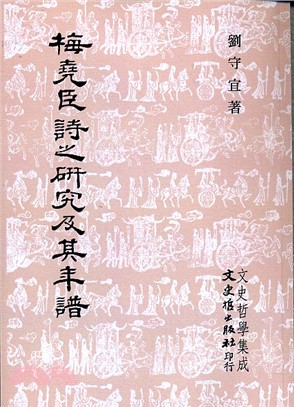 劉守宜著
梅堯臣詩之研究及其年譜
文史哲學集成
文史哲出版社印行